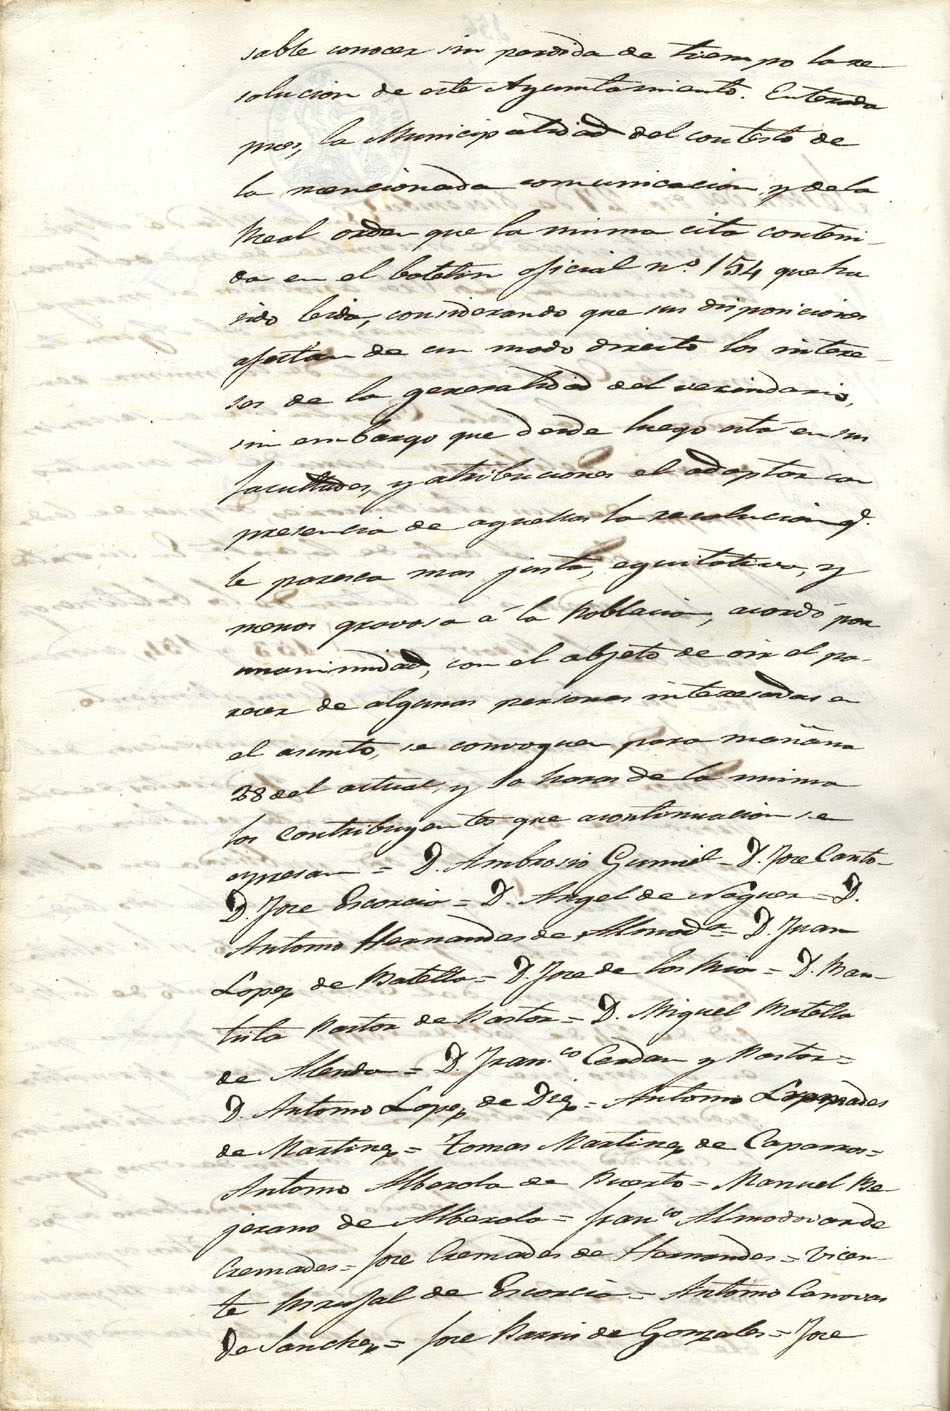 sable conocer sin perdida de tiempo la re-
solucion de este Ayuntamiento. Enterada
pues, la Municipalidad del contesto de
la mencionada comunicacion y de la
Real orden que la misma cita conteni-
da en el boletin oficial n.º 154 que ha
sido leida, considerando que sus disposiciones
afectan de un modo directo los intere-
ses de la generalidad del vecindario,
sin embargo que desde luego está en sus
facultades, y atribuciones el adoptar con
presencia de aquellas la resolucion q.e
le paresca mas justa, equitativa, y
menos gravosa á la Poblacion, acordó por
unanimidad, con el objeto de oir el pa-
recer de algunas personas interesadas en
el asunto, se convoquen para mañana
28 del actual, y 10 horas de la misma
los contribuyentes que acontinuacion se
espresan = D. Ambrosio Gumiel = D. Jose Canto =
D. Jose Escorcio = D. Angel de Noguer = D.
Antonio Hernandes de Almad.r = D. Juan
Lopez de Batella = D. Jose de los Rios = D. Bau-
tista Pastor de Pastor = D. Miguel Batella
de Alenda = D. Fran.co Cerdan y Pastor =
D. Antonio Lopez de Diez = Antonio
de Martinez = Tomas Martinez de Caparros =
Antonio Alberola de Puerto = Manuel Be-
jerano de Alberola = Fran.co Almodovar de
Cremades = Jose Cremades de Hernandes = Vicen-
te de Escorcio = Antonio Canovas
de Sanchez = Jose de Gonzales = Jose